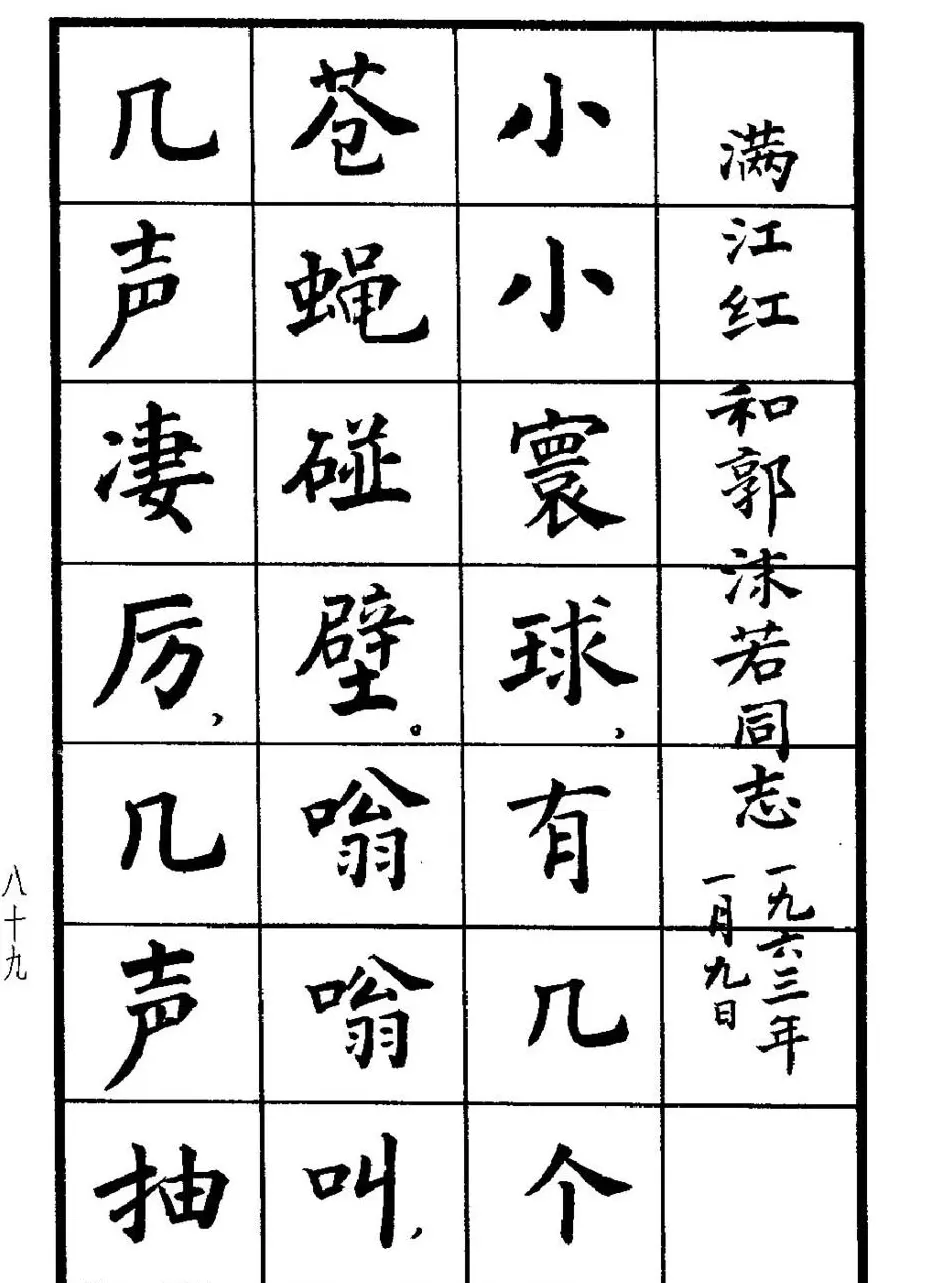 满江红 和郭沫若同志 一九六三年
一月九日
小小寰球，有几个
苍蝇碰壁。嗡嗡叫，
几声凄厉，几声抽
八十九